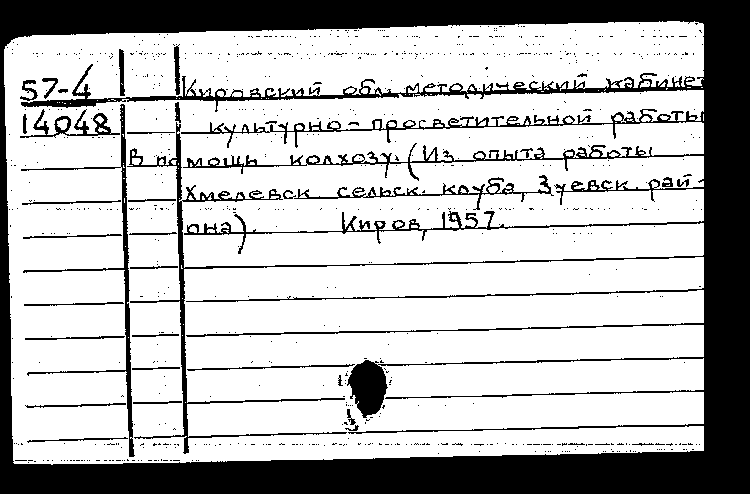 57-4 Кировский обл. методический кабинет
14048 культурно-просветительной работы
В помощь колхозу. (Из опыта работы
Хмелевск. сельск. клуба, Зуевск. рай-
она). Киров, 1957.